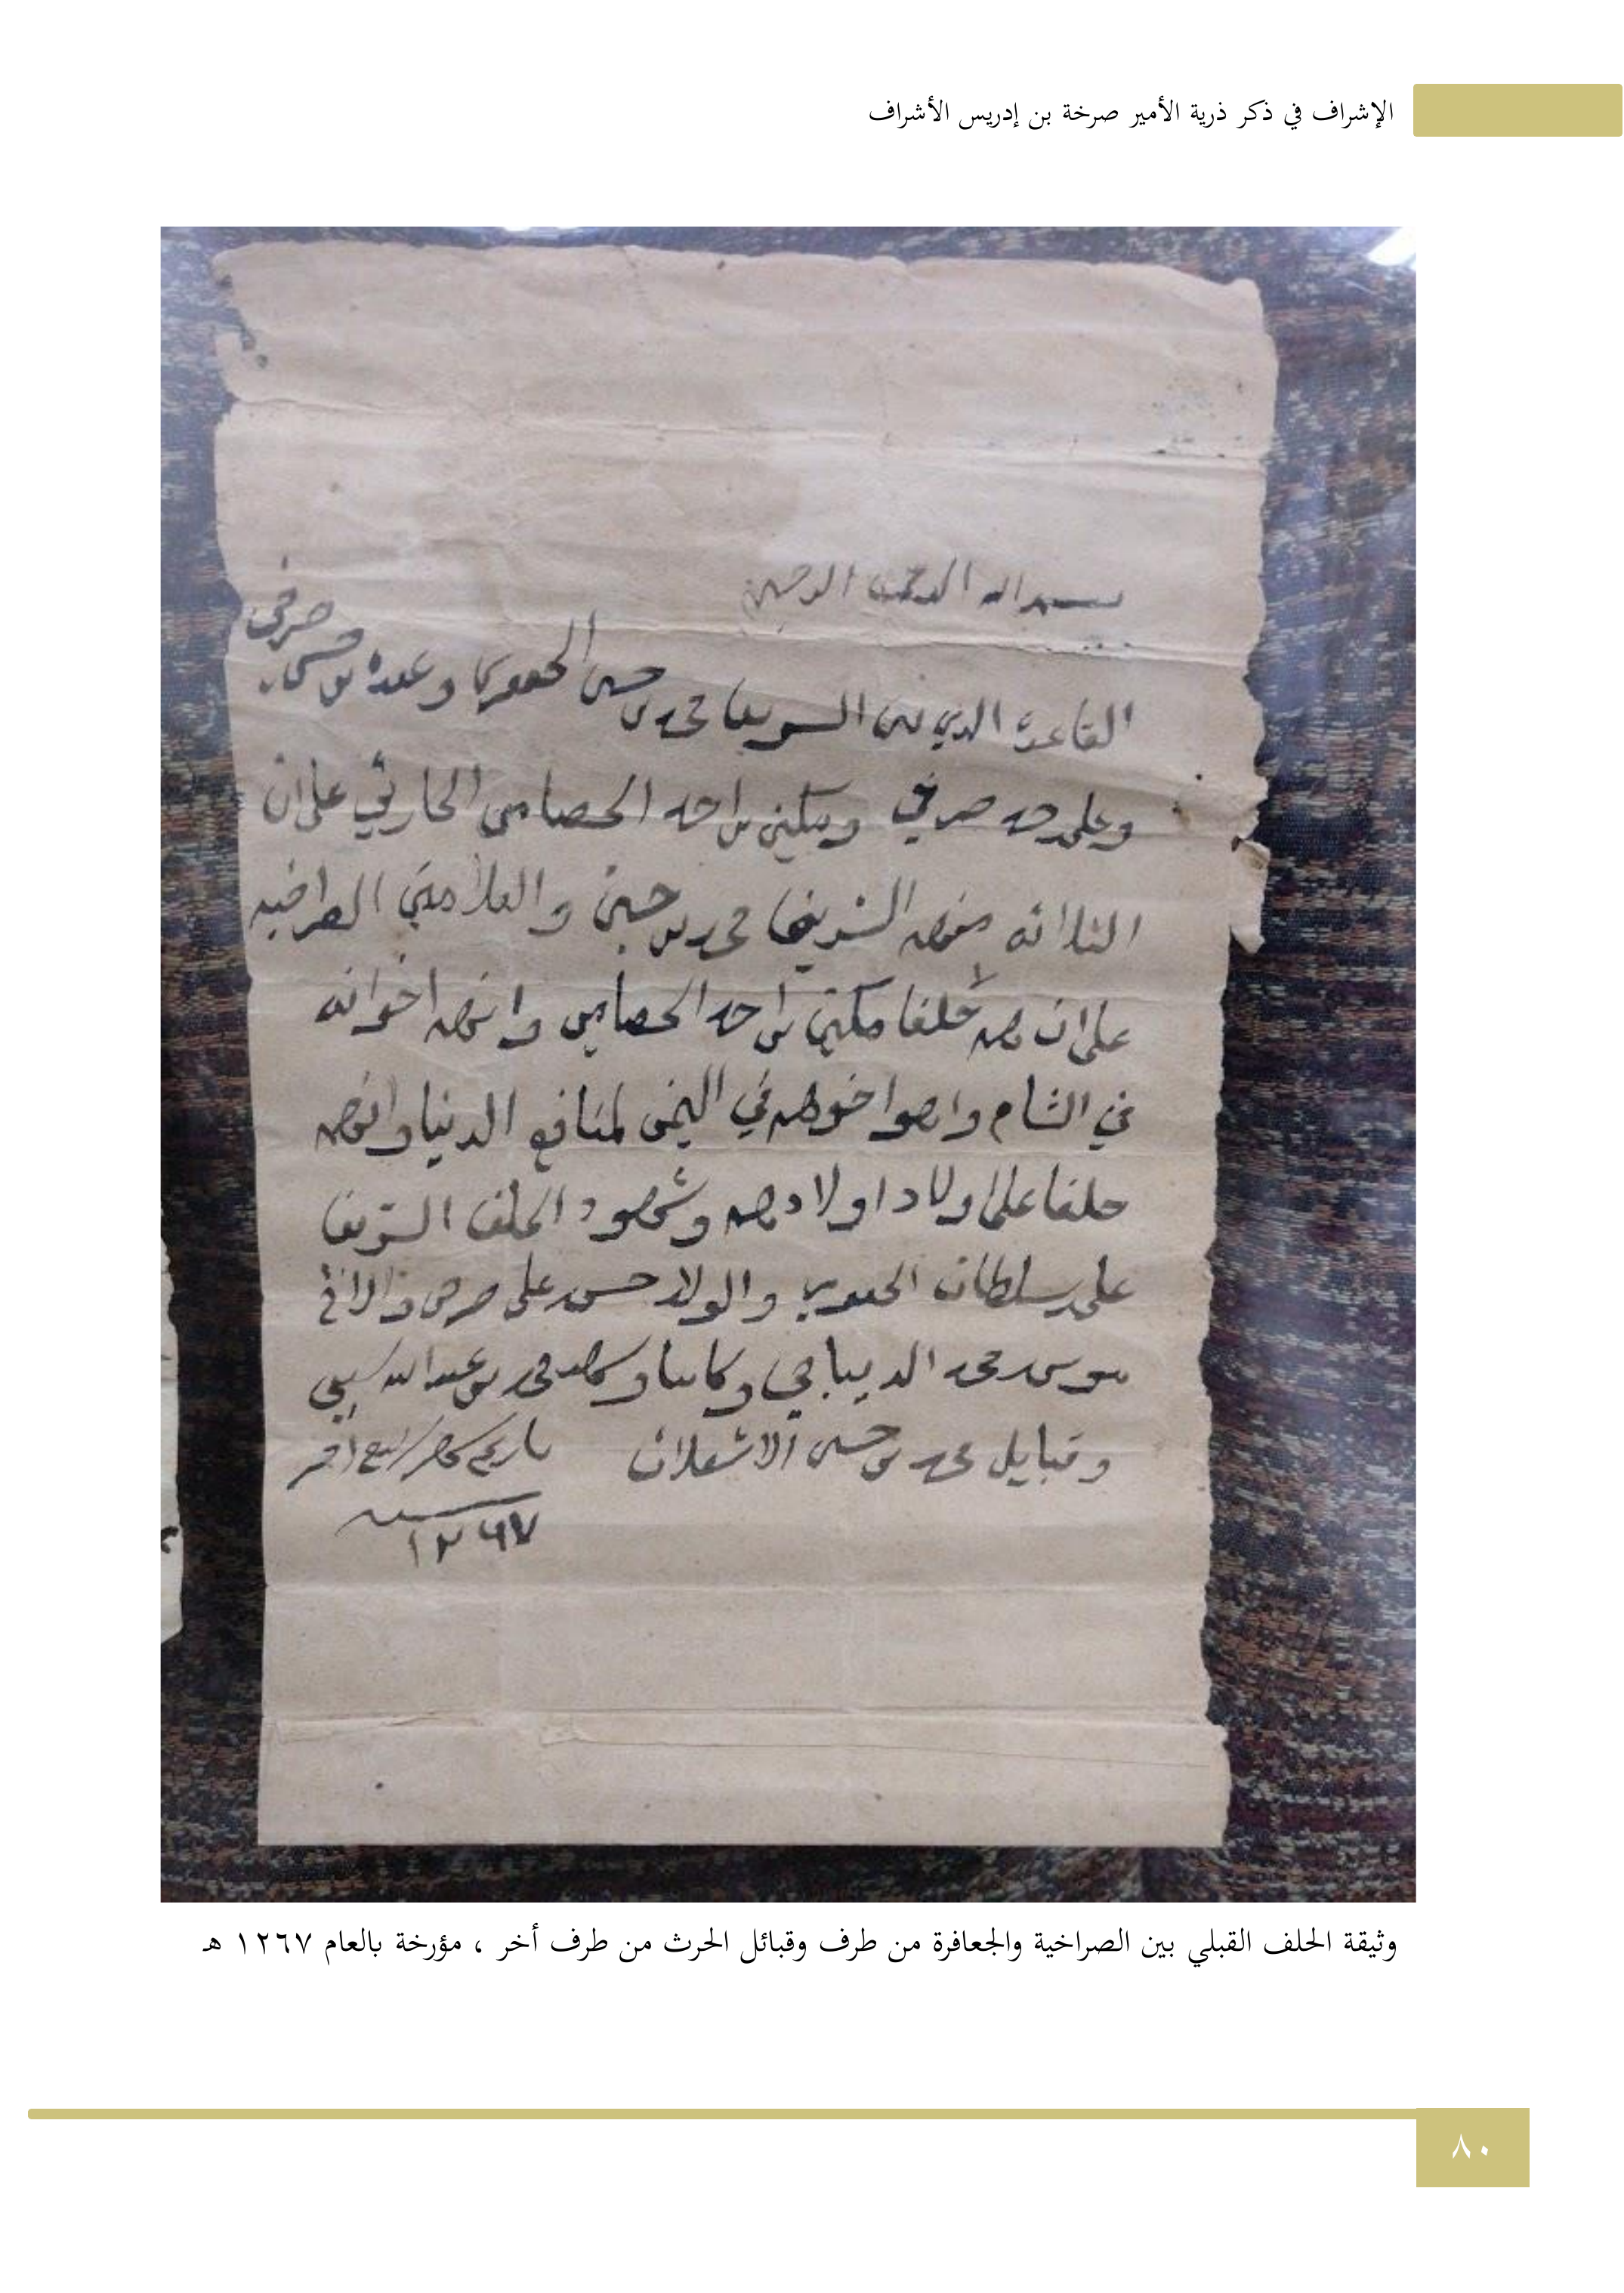 الإشراف في ذكر ذرية الأمير صرخة بن إدريس الأشراف
بسم الله الرحمن الرحيم
القاعدة الذي بين الشريف محمد بن حسين الجعفري وعبده بن حسن صرخي
وعلي حمد صرخي ومكين بن احمد الحصامي الحارثي على ان
الثلاثه منهم الشريف محمد بن حسين والغلامين الصراخيه
على ان هم حلفا مكين بن احمد الحصامي وانهم اخوانه
في الشام وانهوا خوهم في اليمن لمنافع الدنيا وانهم
حلفا على اولاد اولادهم وشهود الحلف الشريف
علي سلطان الجعفري والولد حسن علي صرخي
موسى محمد الديباجي وكاتبا وشاهد محمد بن عبدالله
وقبايل محمد بن حسن الاشعلان تاريخ شهر ربيع اخر
سنة
١٢٦٧
وثيقة الحلف القبلي بين الصراخية والجعافرة من طرف وقبائل الحرث من طرف أخر ، مؤرخة بالعام ١٢٦٧ هـ
٨٠